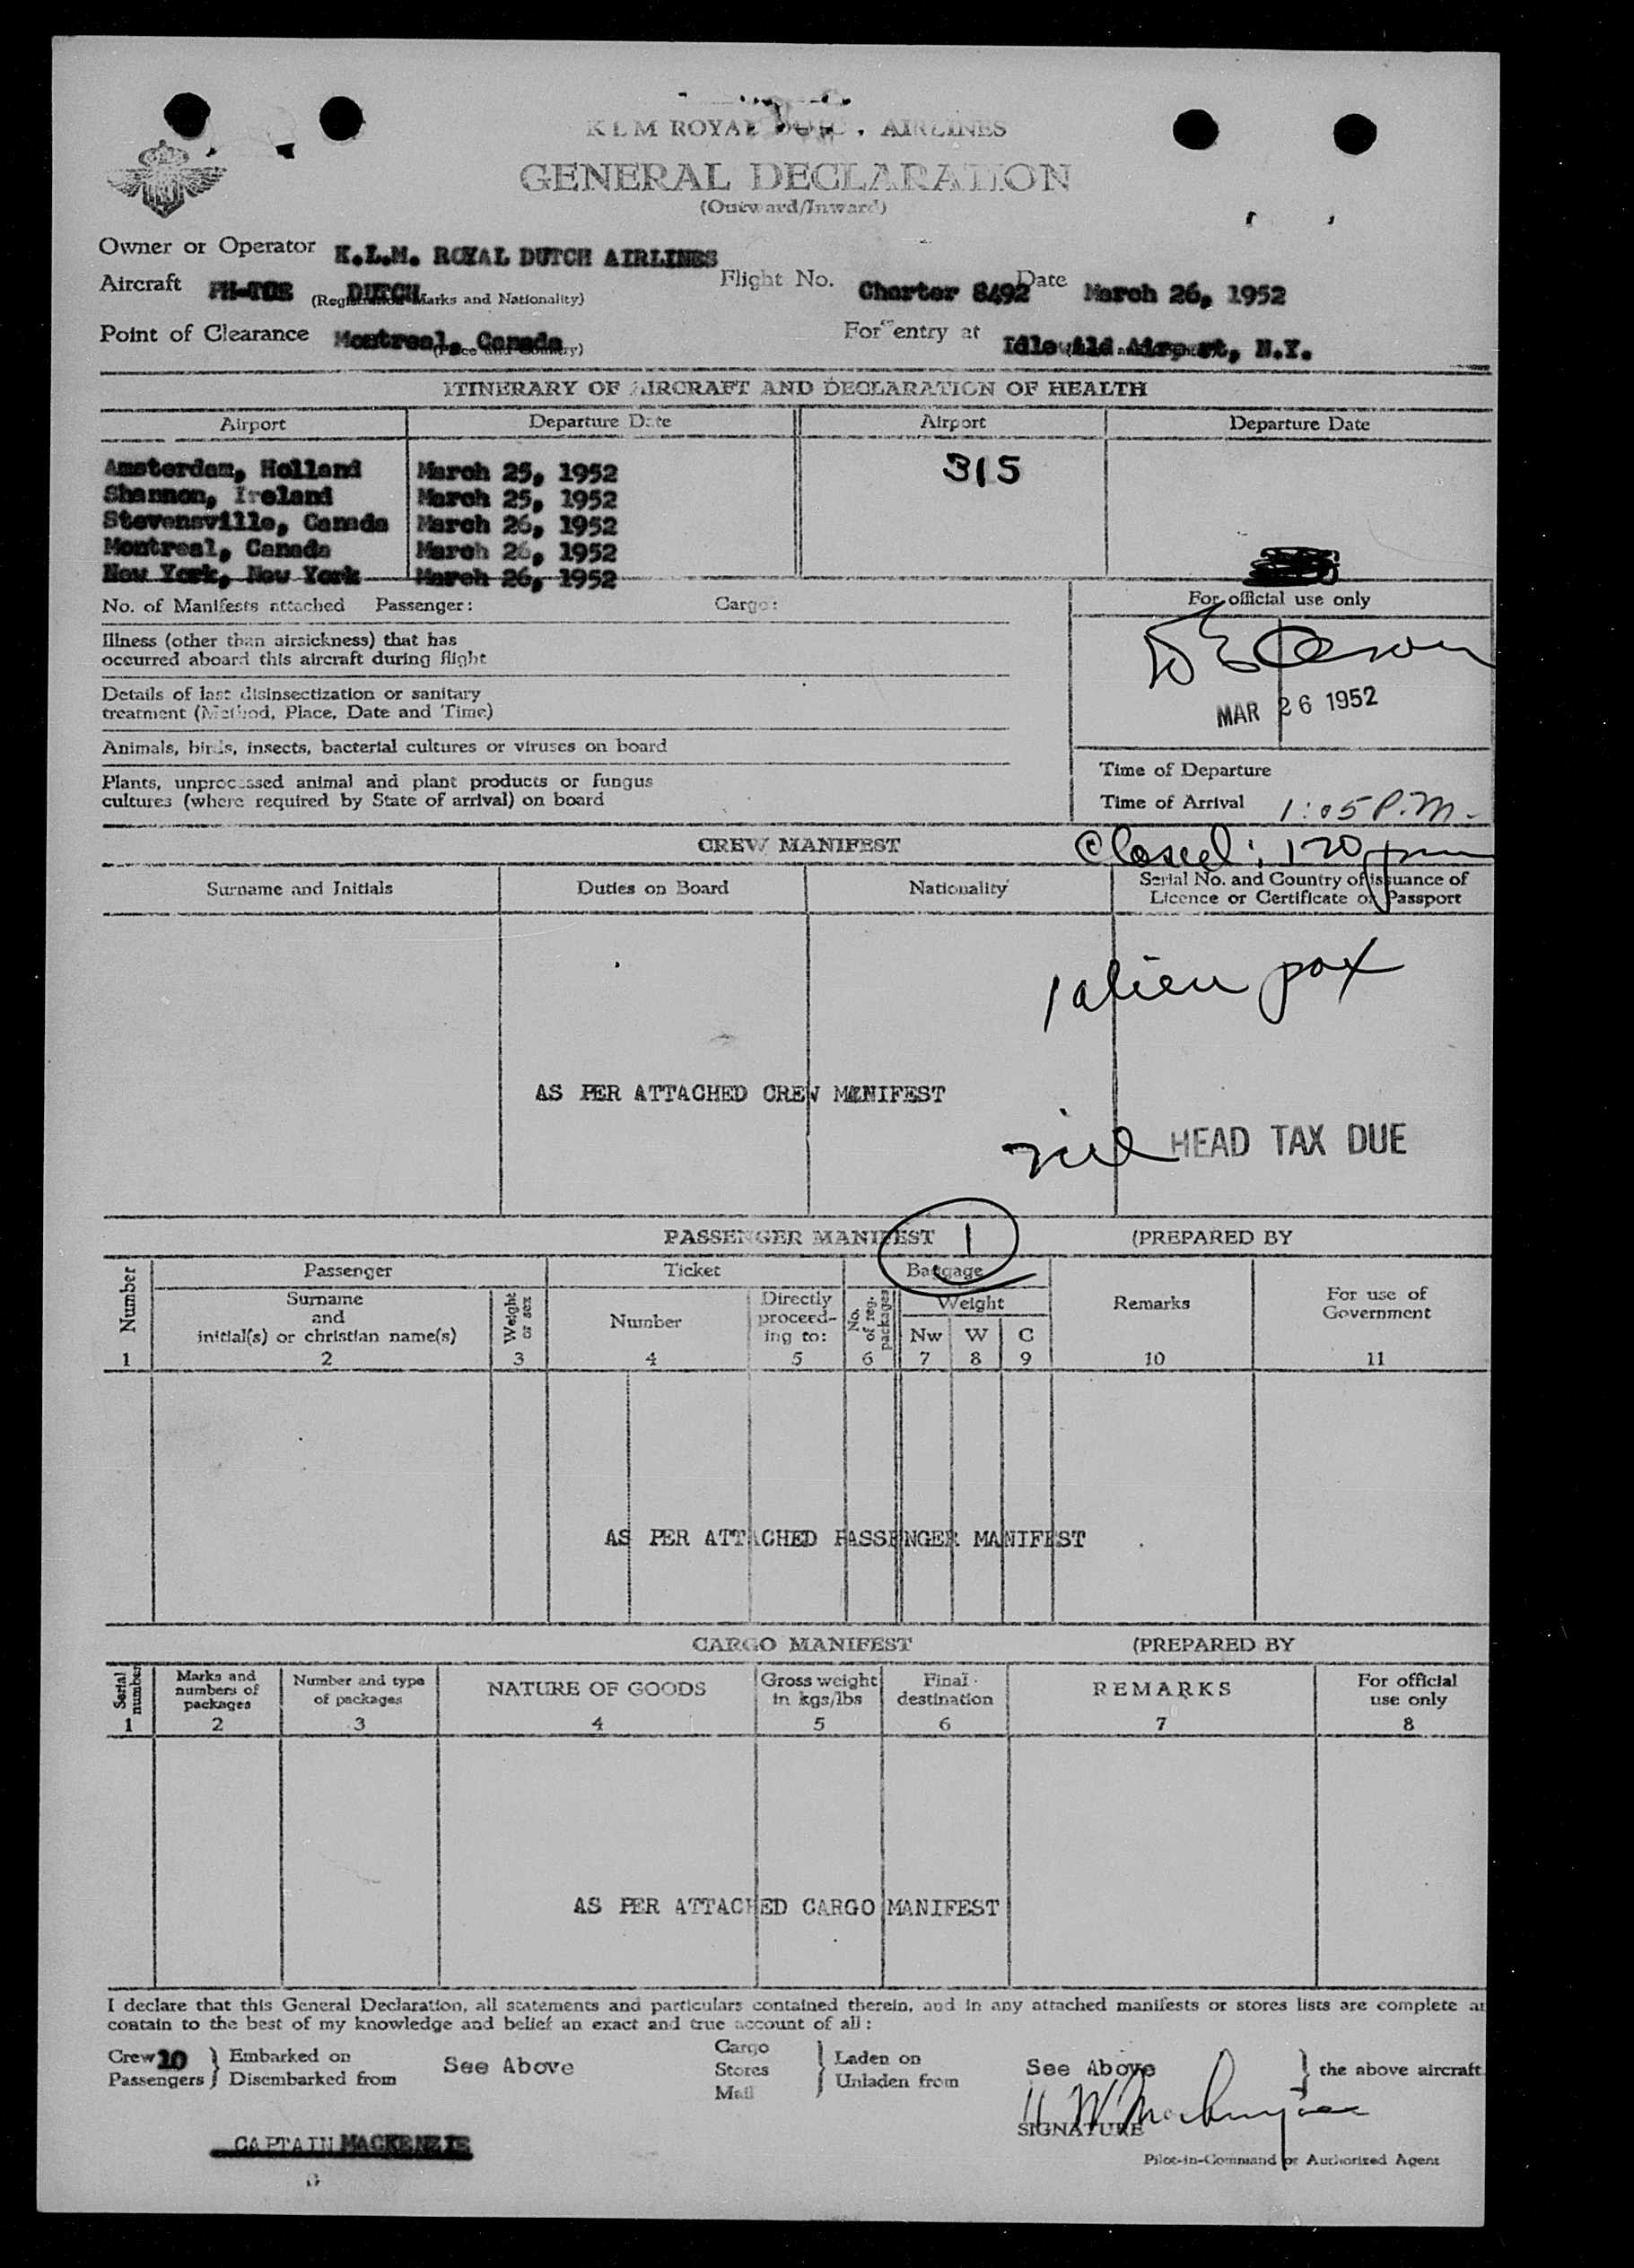 KLM ROYAL DUTCH AIRLINES
GENERAL DECLARATION
(Outward/Inward)
Owner or Operator K.L.M. ROYAL DUTCH AIRLINES
Aircraft DUTCH (Registration Marks and Nationality) Flight No. Charter 8492 Date March 26, 1952
Point of Clearance Montreal, Canada (Place and Country) For entry at Idlewild Airport, N.Y.
ITINERARY OF AIRCRAFT AND DECLARATION OF HEALTH
Airport Departure Date Airport Departure Date
Amsterdam, Holland March 25, 1952 315
Shannon, Ireland March 25, 1952
Stevensville, Canada March 26, 1952
Montreal, Canada March 26, 1952
New York, New York March 26, 1952
No. of Manifests attached Passenger: Cargo: For official use only
Illness (other than airsickness) that has
occurred aboard this aircraft during flight
Details of last disinsectization or sanitary
treatment (Method, Place, Date and Time)
MAR 26 1952
Animals, birds, insects, bacterial cultures or viruses on board
Time of Departure
Plants, unprocessed animal and plant products or fungus
cultures (where required by State of arrival) on board
Time of Arrival 1:05 P.M.
CREW MANIFEST Closed: 120 pm
Surname and Initials Duties on Board Nationality Serial No. and Country of issuance of
Licence or Certificate or Passport
1 alien pax
AS PER ATTACHED CREW MANIFEST
nil HEAD TAX DUE
PASSENGER MANIFEST 1 (PREPARED BY
Number Passenger Ticket Baggage
Surname
and
initial(s) or christian name(s) Weight or sex Number Directly
proceed-
ing to: No. of reg. packages Weight Nw W C Remarks For use of
Government
1 2 3 4 5 6 7 8 9 10 11
AS PER ATTACHED PASSENGER MANIFEST
CARGO MANIFEST (PREPARED BY
Serial number Marks and
numbers of
packages Number and type
of packages NATURE OF GOODS Gross weight
in kgs/lbs Final
destination REMARKS For official
use only
1 2 3 4 5 6 7 8
AS PER ATTACHED CARGO MANIFEST
I declare that this General Declaration, all statements and particulars contained therein, and in any attached manifests or stores lists are complete an
contain to the best of my knowledge and belief an exact and true account of all:
Crew 10 } Embarked on See Above Cargo } Laden on See Above } the above aircraft
Passengers } Disembarked from Stores } Unladen from
Mail
SIGNATURE
CAPTAIN MACKENZIE
Pilot-in-Command or Authorized Agent